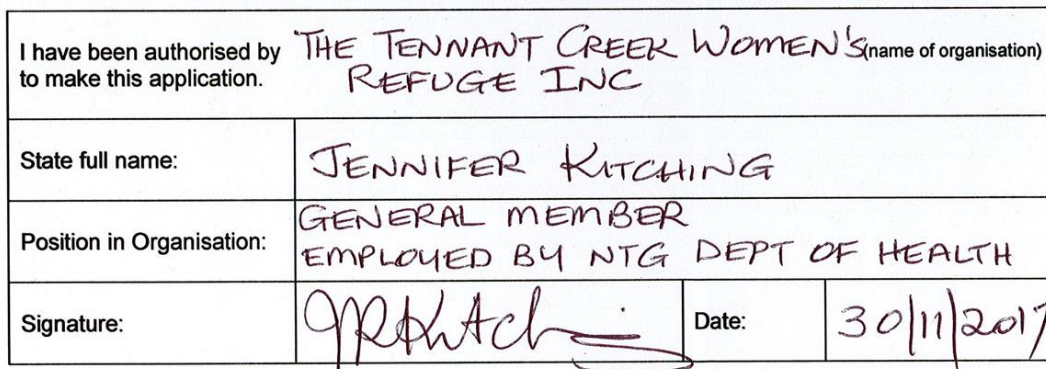 I have been authorised by THE TENNANT CREEK WOMEN'S (name of organisation)
to make this application. REFUGE INC
State full name: JENNIFER KITCHING
Position in Organisation: GENERAL MEMBER
EMPLOYED BY NTG DEPT OF HEALTH
Signature: JRKitching Date: 30/11/2017